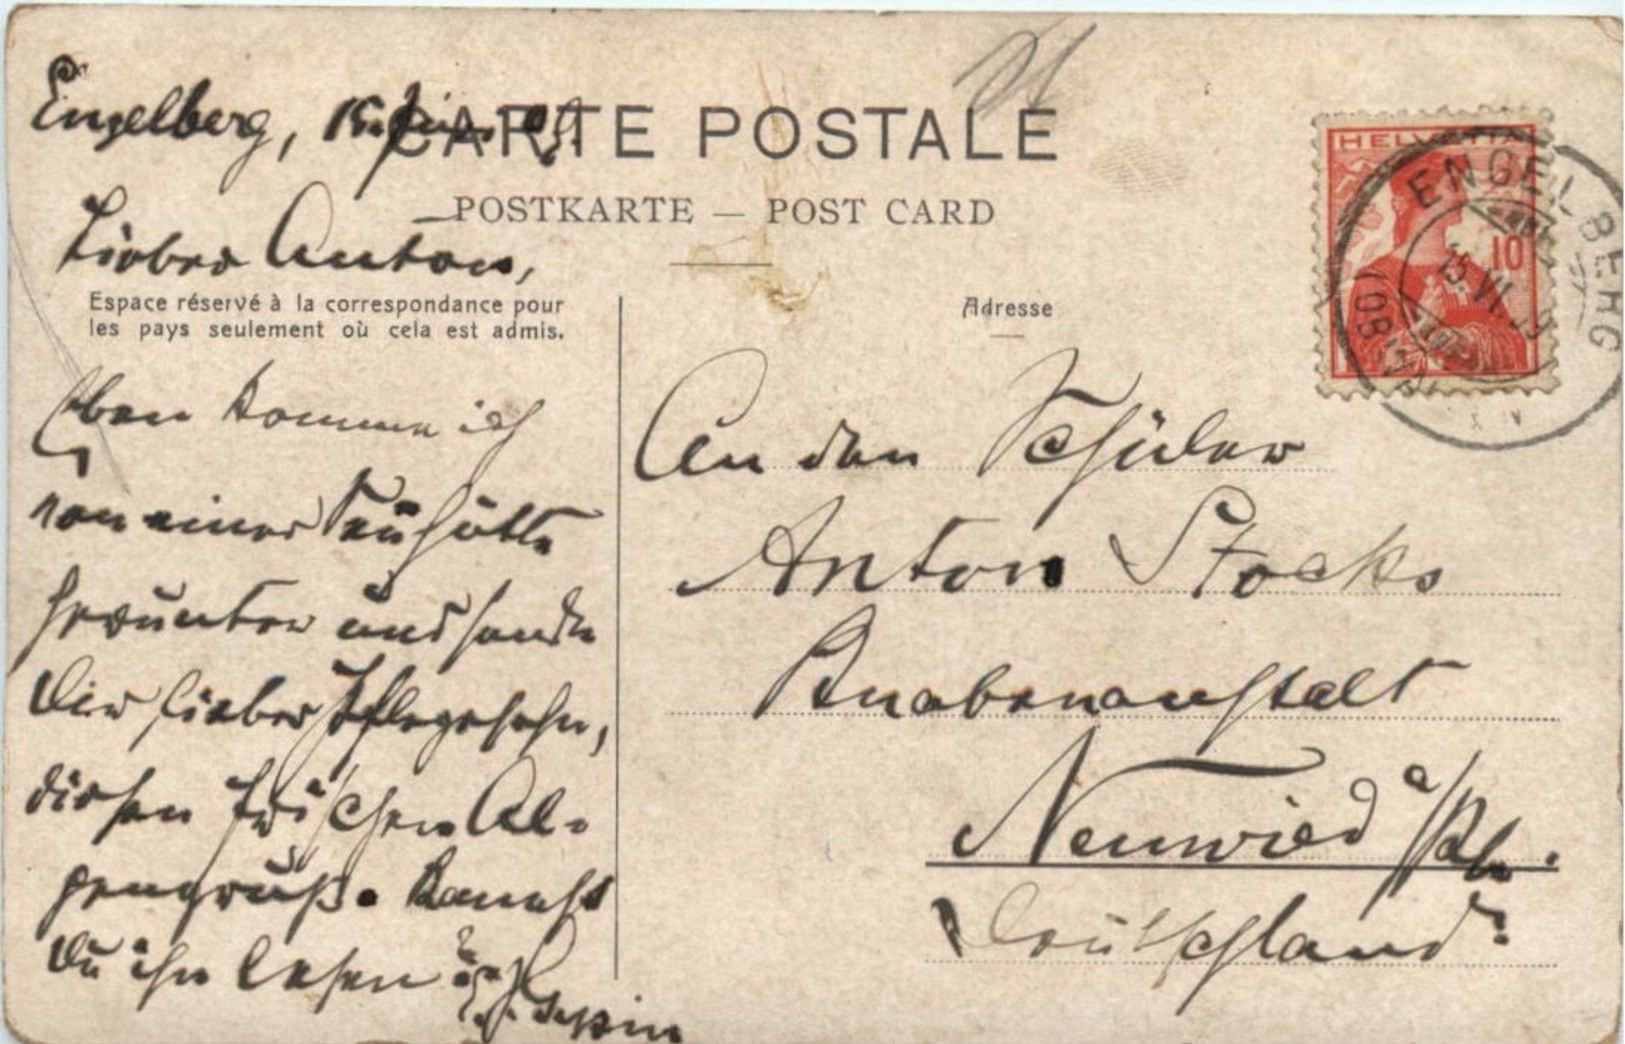 Engelberg, 15. Juni 09.
CARTE POSTALE
POSTKARTE — POST CARD
Lieber Anton,
Espace réservé à la correspondance pour
les pays seulement où cela est admis.
Eben komme ich
von einer Sennhütte
herunter und sende
Dir lieber Pflegesohn,
diesen frischen Al-
pengruß. Kannst
Du ihn lesen?
Adresse
An den Schüler
Anton Stocks
Knabenanstalt
Neuwied a/Rh.
Deutschland.
HELVETIA
10
ENGELBERG
15.VI.09